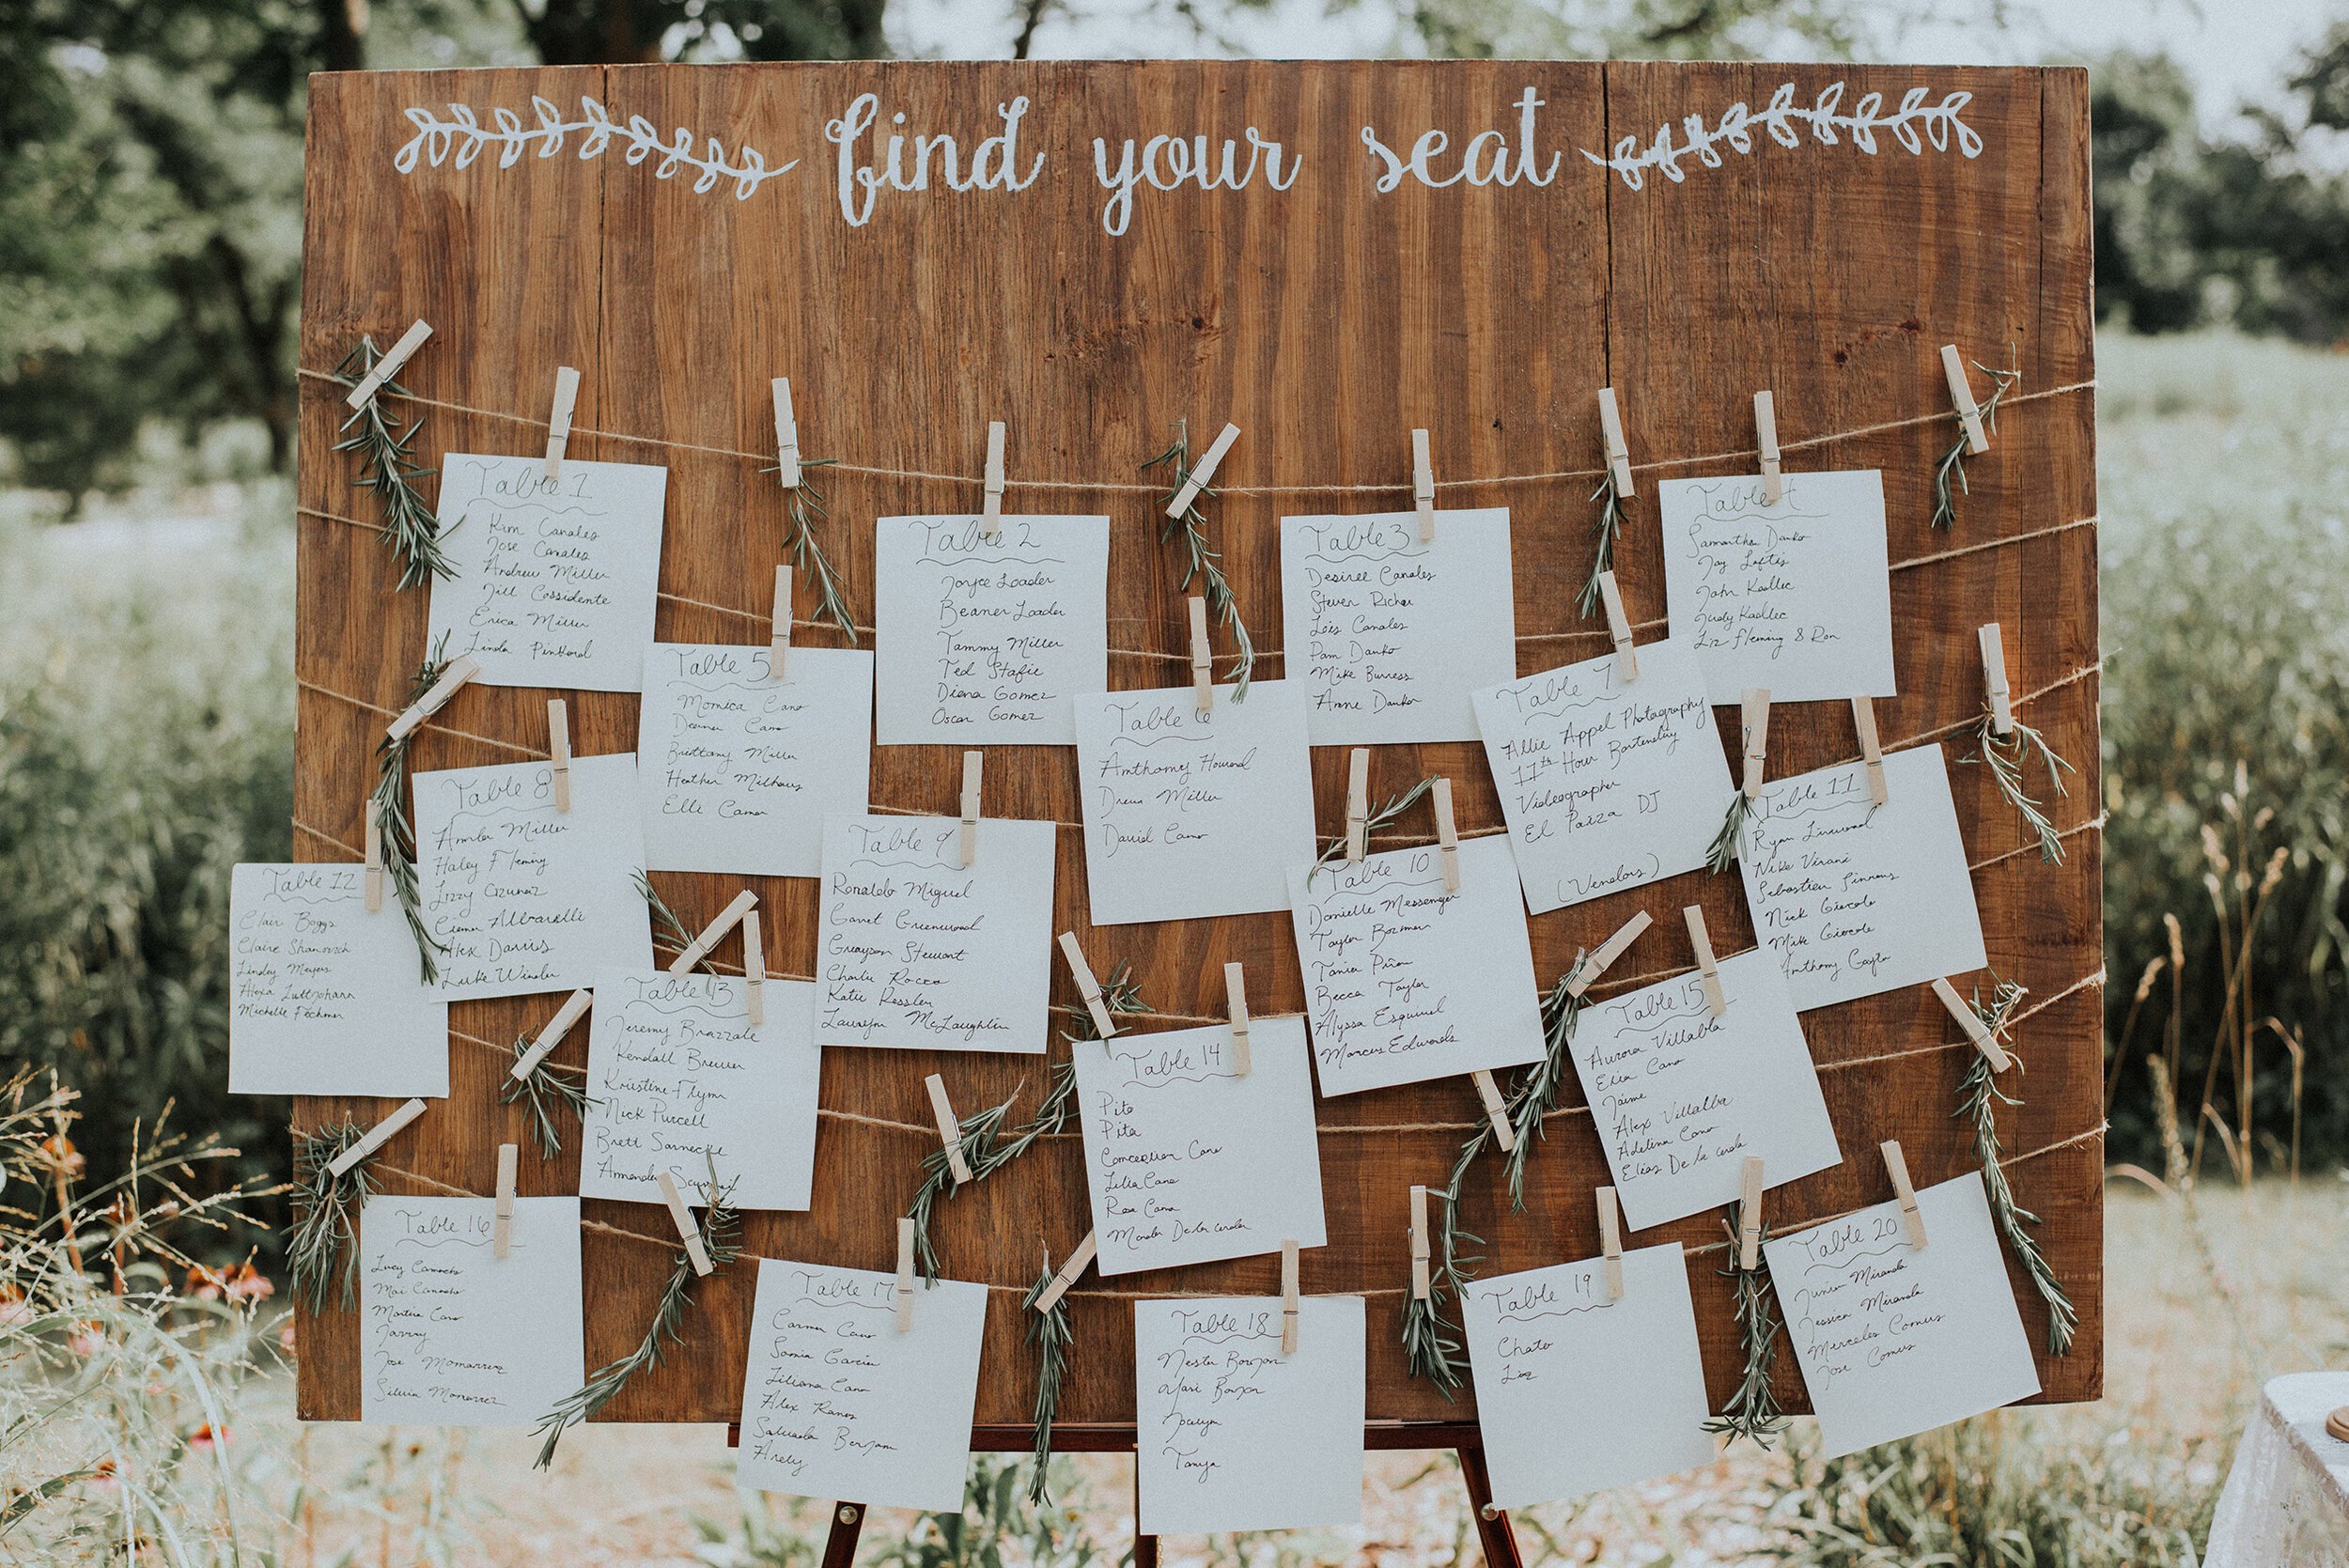 find your seat
Table 1
Kim Canales
Jose Canales
Andrew Miller
Jill Cossidente
Erica Miller
Linda Pinkord
Table 2
Joyce Loader
Beaner Loader
Tammy Miller
Ted Stafie
Diana Gomez
Oscar Gomez
Table 3
Desiree Canales
Steven Richer
Lois Canales
Pam Danko
Mike Burness
Anne Danko
Table 4
Samantha Danko
Jay Loftis
John Kaollec
Judy Kaollec
Liz Fleming & Ron
Table 5
Monica Cano
Deanna Cano
Brittany Miller
Heather Milhous
Elli Caman
Table 6
Anthony Howard
Drew Miller
David Cano
Table 7
Allie Appel Photography
11th Hour Bartending
Videographer
El Paiza DJ
(Vendors)
Table 8
Amber Miller
Haley Fleming
Lizzy Ozunaz
Alex Davies
Luke Winder
Table 9
Ronaldo Miguel
Garret Greenwood
Greayson Stewart
Charlie Rocco
Katie Kessler
Laurejm McLaughlin
Table 10
Danielle Messenger
Taylor Bozman
Tania Piñon
Becca Taylor
Alyssa Esquivel
Marcus Edwards
Table 11
Ryan Linwood
Nike Virani
Sebastien Sinnous
Nick Ciocola
Mike Ciocola
Anthony Gayta
Table 12
Clair Boggs
Claire Shanovich
Lindsy Meyers
Alexa Luttjohann
Michelle Fechmer
Table 13
Jeremy Brazzale
Kendall Brewer
Kristine Flynn
Nick Purcell
Brett Sarnecke
Amanda
Table 14
Pito
Pita
Concepcion Cano
Lilia Cano
Rosa Cano
De la cerda
Table 15
Aurora Villalba
Erica Cano
Jaime
Alex Villalba
Adelina Cano
Elias De la cerda
Table 16
Lucy Camacho
Mai Camacho
Martina Cano
Jarry
Jose Momarrez
Silvia Momarrez
Table 17
Carmen Cano
Sonia Garcia
Liliana Cano
Alex Ramos
Salvada Berjam
Arely
Table 18
Nestor Borjon
Yari Borjon
Jocelyn
Tanya
Table 19
Chato
Liz
Table 20
Junior Miranda
Jessica Miranda
Mercedes Comus
Jose Comus